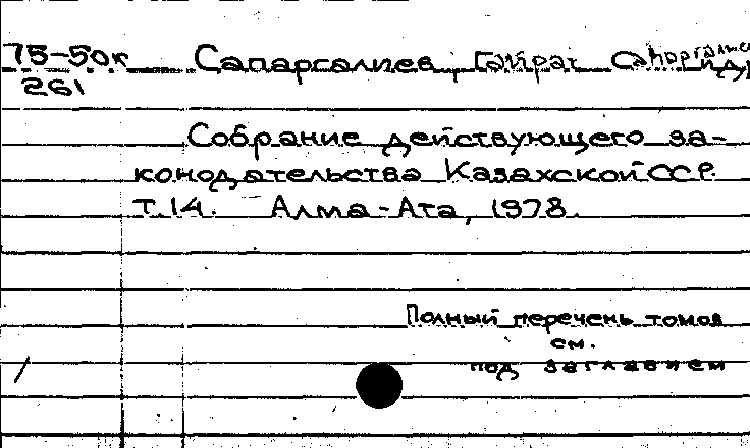 75-50к Сапаргалиев, Гайрат
261
Собрание действующего за-
конодательства Казахской ССР.
т.14. Алма-Ата, 1978.
Полный перечень томов
см.
под заглавием